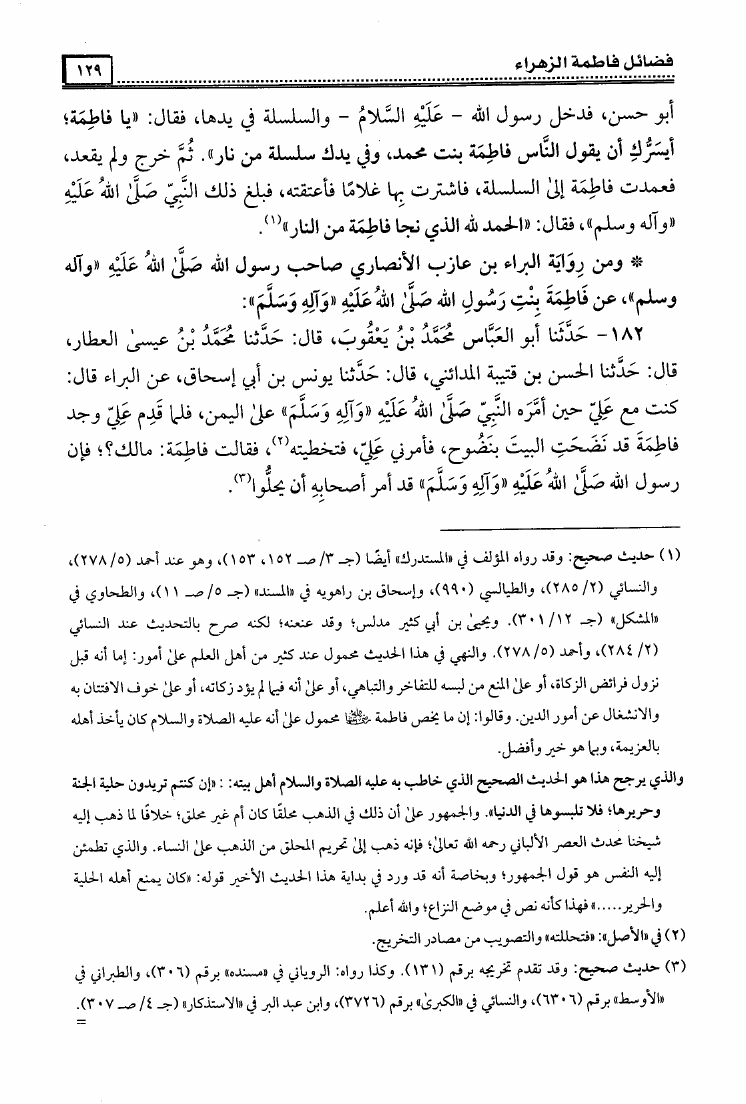 فضائل فاطمة الزهراء
١٢٩
أبو حسن، فدخل رسول الله – عَلَيْهِ السَّلَامُ – والسلسلة في يدها، فقال: «يا فاطِمَة؛
أيسَرُّكِ أن يقول النَّاس فاطِمَة بنت محمد، وفي يدك سلسلة من نار». ثُمَّ خرج ولم يقعد،
فعمدت فاطِمَة إلىٰ السلسلة، فاشترت بِها غلامًا فأعتقته، فبلغ ذلك النَّبِيّ صَلَّىٰ اللهُ عَلَيْهِ
«وآله وسلم»، فقال: «الحمد لله الذي نجا فاطِمَة من النار»(١).
* ومن رِوَايَة البراء بن عازب الأنصاري صاحب رسول الله صَلَّىٰ اللهُ عَلَيْهِ «وآله
وسلم»، عن فَاطِمَةَ بِنْتِ رَسُولِ الله صَلَّىٰ اللهُ عَلَيْهِ «وَآلِهِ وَسَلَّمَ»:
١٨٢- حَدَّثَنا أبو العَبَّاس مُحَمَّدُ بْنُ يَعْقُوبَ، قال: حَدَّثنا مُحَمَّدُ بْنُ عيسىٰ العطار،
قال: حَدَّثنا الحسن بن قتيبة المدائني، قال: حَدَّثنا يونس بن أبي إسحاق، عن البراء قال:
كنت مع عَلِيّ حين أمَّرَه النَّبِيّ صَلَّىٰ اللهُ عَلَيْهِ «وَآلِهِ وَسَلَّمَ» علىٰ اليمن، فلما قَدِم عَلِيّ وجد
فاطِمَةَ قد نَضَحَتِ البيتَ بنَضُوح، فأمرني عَلِيّ، فتخطيته(٢)، فقالت فاطِمَة: مالك؟؛ فإن
رسول الله صَلَّىٰ اللهُ عَلَيْهِ «وَآلِهِ وَسَلَّمَ» قد أمر أصحابِهِ أن يحلُّوا(٣).
(١) حديث صحيح: وقد رواه المؤلف في «المستدرك» أيضًا (جـ ٣/ صـ ١٥٢، ١٥٣)، وهو عند أحمد (٥/ ٢٧٨)،
والنسائي (٢/ ٢٨٥)، والطيالسي (٩٩٠)، وإسحاق بن راهويه في «المسند» (جـ ٥/ صـ ١١)، والطحاوي في
«المشكل» (جـ ١٢/ ٣٠١). ويحيىٰ بن أبي كثير مدلس؛ وقد عنعنه؛ لكنه صرح بالتحديث عند النسائي
(٢/ ٢٨٤)، وأحمد (٥/ ٢٧٨). والنهي في هذا الحديث محمول عند كثير من أهل العلم علىٰ أمور: إما أنه قبل
نزول فرائض الزكاة، أو علىٰ المنع من لبسه للتفاخر والتباهي، أو علىٰ أنه فيما لم يؤد زكاته، أو علىٰ خوف الافتتان به
والانشغال عن أمور الدين. وقالوا: إن ما يخص فاطمة محمول علىٰ أنه عليه الصلاة والسلام كان يأخذ أهله
بالعزيمة، وبما هو خير وأفضل.
والذي يرجح هذا هو الحديث الصحيح الذي خاطب به عليه الصلاة والسلام أهل بيته: : «إن كنتم تريدون حلية الجنة
وحريرها؛ فلا تلبسوها في الدنيا». والجمهور علىٰ أن ذلك في الذهب محلقًا كان أم غير محلق؛ خلافًا لما ذهب إليه
شيخنا محدث العصر الألباني رحمه الله تعالىٰ؛ فإنه ذهب إلىٰ تحريم المحلق من الذهب علىٰ النساء. والذي تطمئن
إليه النفس هو قول الجمهور؛ وبخاصة أنه قد ورد في بداية هذا الحديث الأخير قوله: «كان يمنع أهله الحلية
والحرير.....» فهذا كأنه نص في موضع النزاع؛ والله أعلم.
(٢) في «الأصل»: «فتحللته» والتصويب من مصادر التخريج.
(٣) حديث صحيح: وقد تقدم تخريجه برقم (١٣١). وكذا رواه: الروياني في «مسنده» برقم (٣٠٦)، والطبراني في
«الأوسط» برقم (٦٣٠٦)، والنسائي في «الكبرىٰ» برقم (٣٧٢٦)، وابن عبد البر في «الاستذكار» (جـ ٤/ صـ ٣٠٧).
=